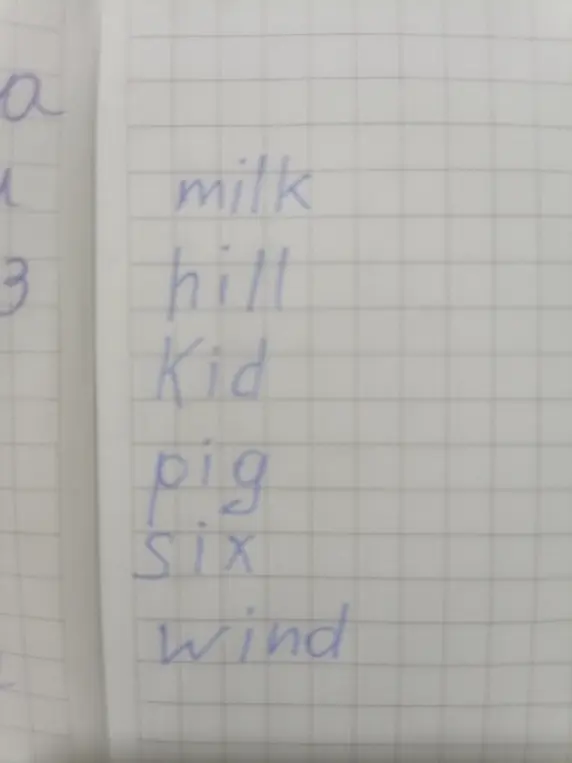 a
3
milk
hill
Kid
pig
six
wind